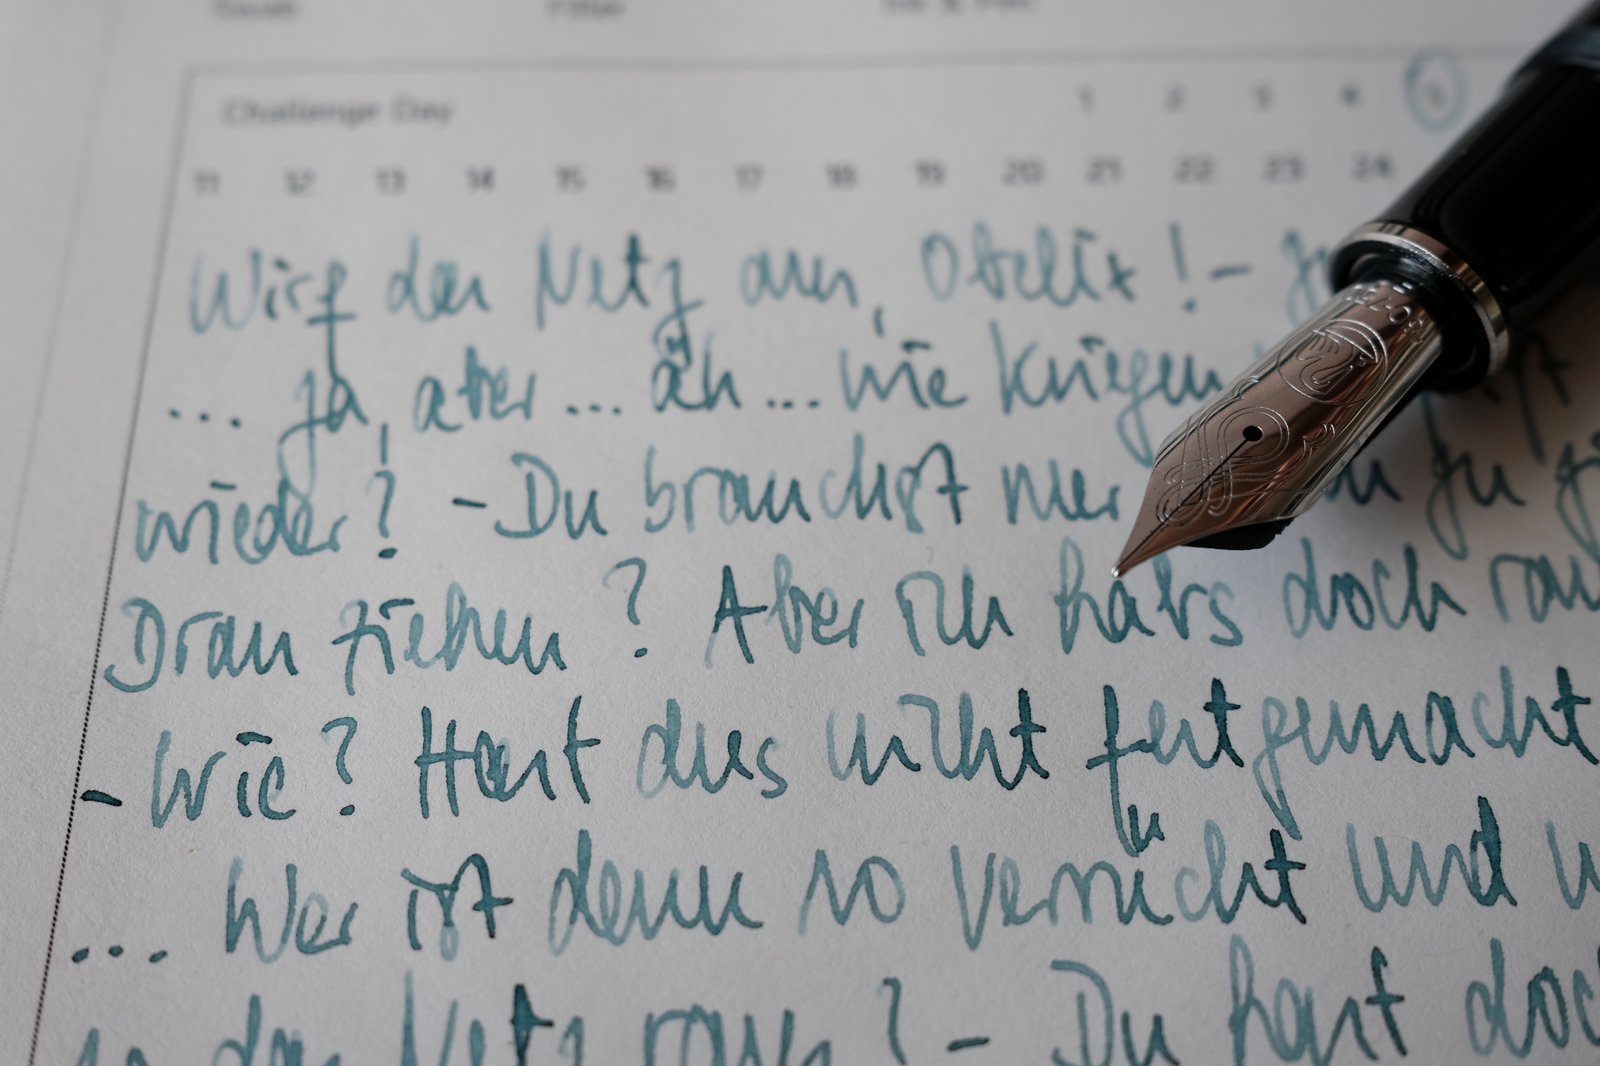 Challenge Day 1 2 3 4 5
11 12 13 14 15 16 17 18 19 20 21 22 23 24
Wirf das Netz aus, Obelix! -
... ja, aber ... äh ... wie kriegen
wieder? - Du brauchst nur zu
Dran ziehen? Aber ich habs doch
- Wie? Hast dus nicht festgemacht
... Wer ist denn so verrückt und
das Netz raus? - Du hast